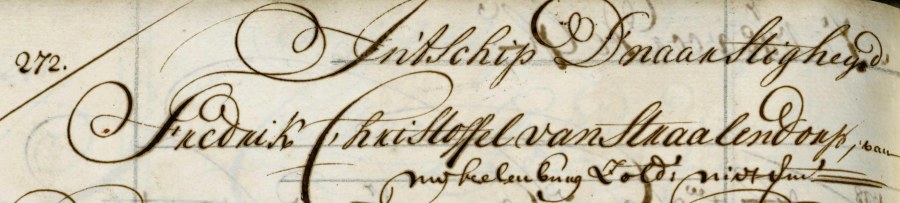 272. In't Schip D'naarstigheyd
Fredrik Christoffel van Straalendorp, van
meekelenburg Zold: